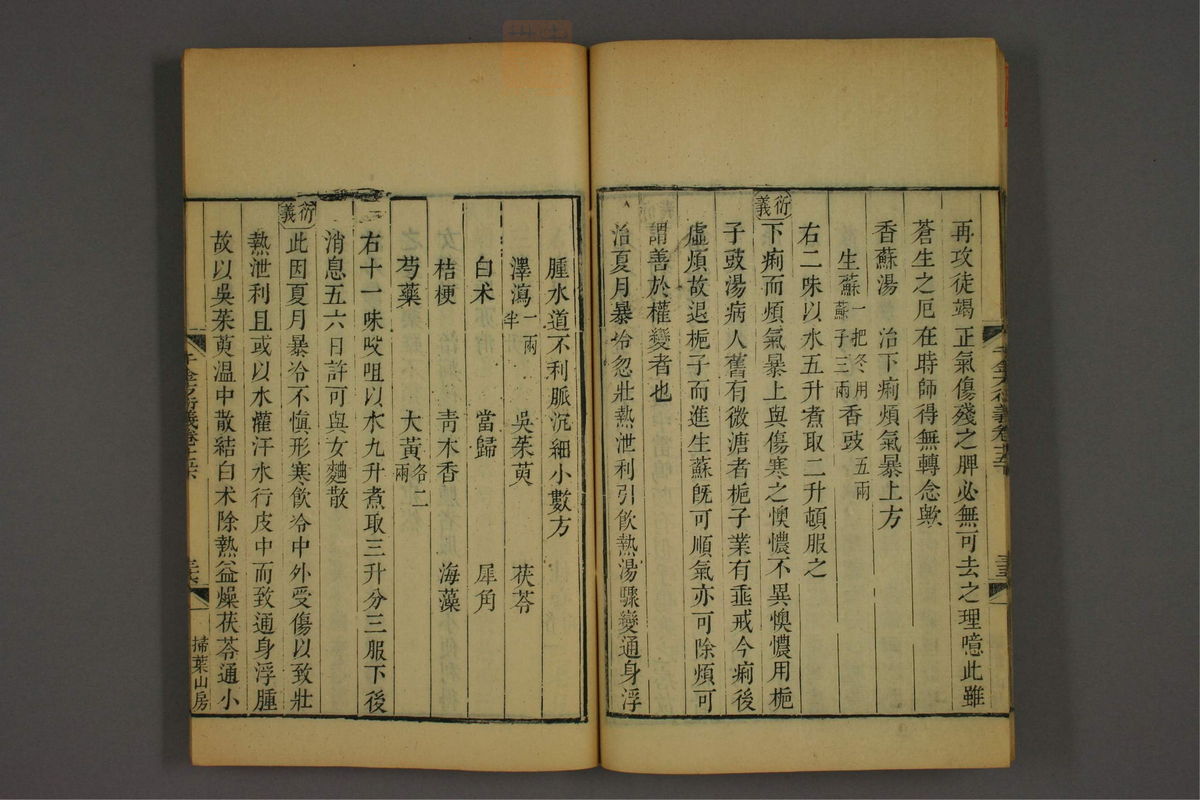 再攻徒竭正氣傷殘之脾必無可去之理噫此雖
蒼生之厄在時師得無轉念歟
香蘇湯　治下痢煩氣暴上方
生蘇一把冬用蘇子三兩　香豉五兩
右二味以水五升煮取二升頓服之
衍義　下痢而煩氣暴上與傷寒之懊憹不異懊憹用梔
子豉湯病人舊有微溏者梔子業有垂戒今痢後
虛煩故退梔子而進生蘇旣可順氣亦可除煩可
謂善於權變者也
治夏月暴冷忽壯熱泄利引飲熱湯驟變通身浮
腫水道不利脈沉細小數方
澤瀉一兩半　吳茱萸　茯苓
白术　當歸　犀角
桔梗　靑木香　海藻
芍藥　大黃各二兩
右十一味㕮咀以水九升煮取三升分三服下後
消息五六日許可與女麯散
衍義　此因夏月暴冷不愼形寒飮冷中外受傷以致壯
熱泄利且或以水灌汗水行皮中而致通身浮腫
故以吳茱萸溫中散結白术除熱益燥茯苓通小
掃葉山房